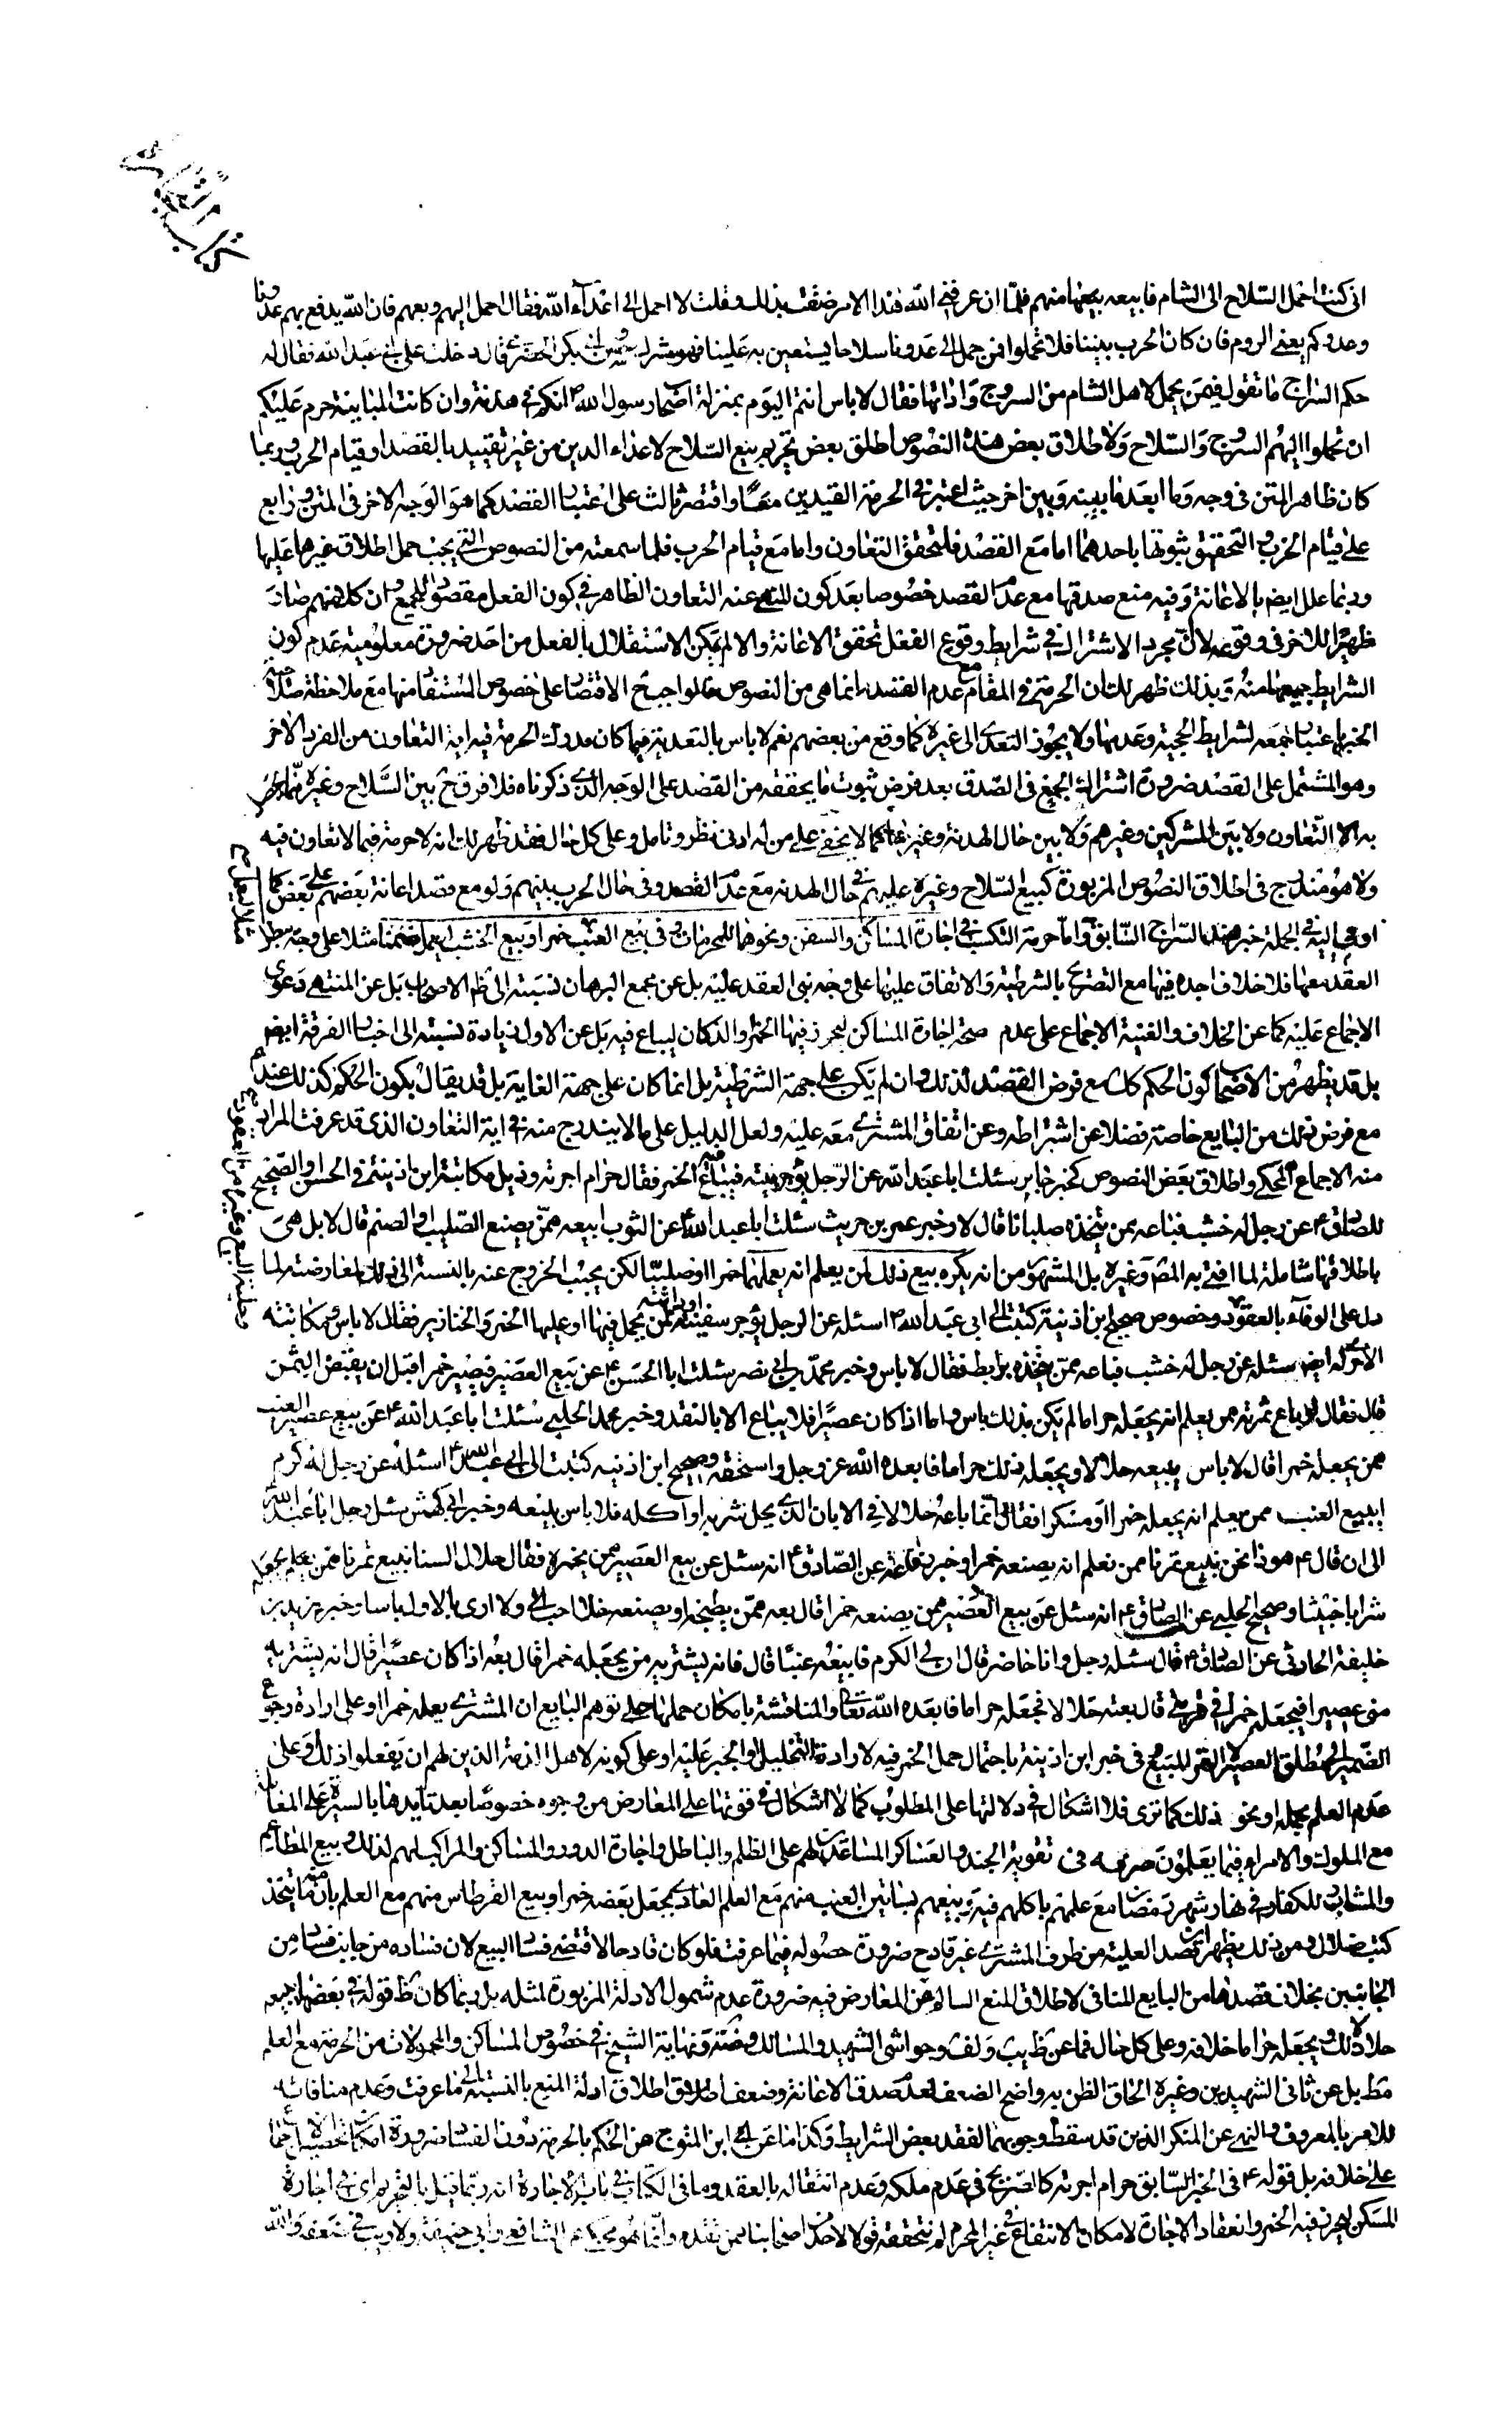 كتاب التجارة
اني كنت احمل السّلاح الى الشام فابيعه بيعها منهم فلمّا ان عرفني الله هذا الامر ضقت بذلك وقلت لا احمل الى اعداء الله فقال احمل اليهم وبعهم فان الله يدفع بهم عدونا
وعدوكم يعني الروم فان كان الحرب بيننا فلا تحملوا فمن حمل الى عدونا سلاحا يستعينون به علينا فهو مشرك بكر الحضرمي قال دخلت على ابي عبد الله فقال له
حكم السّراج ما تقول فيمن يحمل لاهل الشام من السروج واداتها فقال لا باس انتم اليوم بمنزلة اصحاب رسول الله انكم في هدنة وان كانت المباينة حرم عليكم
ان تحملوا اليهم السروج والسّلاح ولاطلاق بعض هذه النصوص اطلق بعض تحريم بيع السّلاح لاعداء الدين من غير تقييد بالقصد او قيام الحرب وربما
كان ظاهر المتن في وجه وما ابعد ما بينه وبين اخر حيث اعتبر في الحرمة القيدين معًا واقتصر ثالث على اعتبار القصد كما هو الوجه الاخر في المتن ورابع
على قيام الحرب والتحقيق ثبوتها باحدهما اما مع القصد فلتحقق التعاون واما مع قيام الحرب فلما سمعته من النصوص التي يجب حمل اطلاق غيرها عليها
وربما علل ايضا بالاعانة وفيه منع صدقها مع عدم القصد خصوصا بعد كون المنهي عنه التعاون الظاهر في كون الفعل مقصودا للجميع وان كلا منهم صار
ظهيرًا للاخر في وقوعه لا ان مجرد الاشتراك في شرايط وقوع الفعل تحقق الاعانة والا لم يمكن الاستقلال بالفعل من احد ضرورة معلومية عدم كون
الشرايط جميعها منه وبذلك ظهر لك ان الحرمة في المقام مع عدم القصد انما هي من النصوص فالواجب ح الاقتصار على خصوص المستفاد منها مع ملاحظة
الخبر باعتبار جمعه لشرايط الحجية وعدمها ولا يجوز التعدي الى غيره كما وقع من بعضهم نعم لا باس بالتعدية فيما كان مدرك الحرمة فيه اية التعاون من الفرد الاخر
وهو المشتمل على القصد ضرورة اشتراك الجميع في الصّدق بعد فرض ثبوت ما يحققه من القصد على الوجه الذي ذكرناه فلا فرق ح بين السّلاح وغيره
به الا التّعاون ولا بين المشركين وغيرهم ولا بين حال الهدنة وغيرها كما لا يخفى على من له ادنى نظر وتامل وعلى كل حال فقد ظهر لك انه لا حرمة فيما لا تعاون فيه
ولا هو مندرج في اطلاق النصوص المزبورة كبيع السّلاح وغيره عليهم في حال الهدنه مع عدم القصد وفي حال الحرب بينهم ولو مع قصد اعانة بعضهم على بعض كما
اومى اليه في الجملة خبر هند السّراج السّابق واما حرمة التكسب في اجارة المساكن والسفن ونحوها للمحرمات وفي بيع العنب خمرا وبيع الخشب ليعمل صنما مثلا على وجه
العقد معها فلا خلاف اجده فيها مع التصريح بالشرطية والاتفاق عليها على وجه بني العقد عليه بل عن مجمع البرهان نسبته الى ظ الاصحاب بل عن المنتهى دعوى
الاجماع عليه كما عن الخلاف والغنية الاجماع على عدم صحة اجارة المساكن ليحرز فيها الخمر والدكان ليباع فيه بل عن الاول زيادة نسبته الى اخبار الفرقة ايضا
بل قد يظهر من الاصحاب كون الحكم كك مع فرض القصد لذلك وان لم يكن على جهة الشرطية بل انما كان على جهة الغاية بل قد يقال بكون الحكم كذلك عندهم
مع فرض ذلك من البايع خاصة فضلا عن اشتراطه وعن اتفاق المشتري معه عليه ولعل الدليل على ما لا يندرج منه في اية التعاون الذي قد عرفت المراد
منه الاجماع المحكي واطلاق بعض النصوص كخبر جابر سئلت ابا عبد الله عن الرّجل يؤجر بيته فيباع فيه الخمر فقال حرام اجرته وذيل مكاتبة ابن اذينة في الحسن او الصّحيح
للصادق ع عن رجل له خشب فباعه ممن يتخذه صلبانا قال لا وخبر عمرو بن حريث سئلت ابا عبد الله ع عن التوب ابيعه ممّن يصنع الصّليب والصنم قال لا بل هي
باطلاقها شاملة لما افتى به المص وغيره بل المشهور من انه يكره بيع ذلك لمن يعلم انه يعملها خمرا او صليبًا لكن يجب الخروج عنه بالنسبة الى ذلك لمعارضته لما
دل على الوفاء بالعقود وخصوص صحيح ابن اذينة كتبت الى ابي عبد الله ع اسئله عن الرجل يؤجر سفينته او دابته لمن يحمل فيها او عليها الخمر والخنازير فقال لا باس ومكاتبته
الاخرى له ايضا سئله عن رجل له خشب فباعه ممّن يتخذه برابط فقال لا باس وخبر محمد بن ابي نصر سئلت ابا الحسن ع عن بيع العصير فيصير خمرا قبل ان يقبض الثمن
قال فقال لو باع ثمرته ممن يعلم انه يجعله حراما لم يكن بذلك باس واما اذا كان عصيرًا فلا يباع الا بالنقد وخبر محمد الحلبي سئلت ابا عبد الله ع عن بيع عصير العنب
ممن يجعله خمرا قال لا باس يبيعه حلالا ويجعله ذلك حراما فابعده الله عز وجل واسحقه وصحيح ابن اذنيه كتبت الى ابي عبد الله ع اسئله عن رجل له كرم
ايبيع العنب ممن يعلم انه يجعله خمرا او مسكرا فقال انّما باعه حلالا في الابان الذي يحل شربه او اكله فلا باس ببيعه وخبر ابي كهمش سئل رجل ابا عبد الله ع
الى ان قال ع هو ذا نحن نبيع تمرنا ممن نعلم انه يصنعه خمرا وخبر رفاعة عن الصّادق ع انه سئل عن بيع العصير ممن يخمره فقال حلال السنا نبيع تمرنا ممن يعلم يجعله
شرابا خبيثا وصحيح الحلبي عن الصادق ع انه سئل عن بيع العصير ممن يصنعه خمرا قال بعه ممّن يطبخه او يصنعه خلا احب الي ولا ارى بالاول باسا وخبر يزيد بن
خليفة الحارثي عن الصادق ع قال سئله رجل وانا حاضر قال ان لي الكرم فابيعه عنبًا قال فانه يشتريه من يجعله خمرا قال بعه اذا كان عصيرا قال انه يشتريه
مني عصيرا فيجعله خمرا في قربتي قال بعته حلالا فجعله حراما فابعده الله تعالى والمناقشة بامكان حملها على توهم البايع ان المشتري يعمله خمرا او على ارادة رجوع
الضّمير الى مطلق العصير لا للمبيع وفي خبر ابن اذينة باحتمال حمل الخمر فيه لارادة التخليل او الجبر عليه او على كونه لاهل الذمة الذين لهم ان يفعلوا ذلك وعلى
عدم العلم بحمله او نحو ذلك كما ترى فلا اشكال في دلالتها على المطلوب كما لا اشكال في قوتها على المعارض من وجوه خصوصًا بعد تأيدها بالسيرة على المعاملة
مع الملوك والامراء فيما يعلمون صرفه في تقوية الجند والعساكر المساعدين لهم على الظلم والباطل واجارة الدور والمساكن والمراكب لهم لذلك وبيع المطاعم
والمشارب للكفار في نهار شهر رمضان مع علمهم باكلهم فيه وبيعهم بساتين العنب منهم مع العلم العادي بجعل بعضه خمرا وبيع القرطاس منهم مع العلم بان منه ما يتخذ
كتب ضلال ومن ذلك يظهر ان قصد العلية من طرف المشتري غير قادح ضرورة حصوله فيما عرفت فلو كان قادحا لاقتضى فساد البيع لان فساده من جانب فساد من
الجانبين بخلاف قصدها من البايع المنافي لاطلاق المنع السالم عن المعارض فيه ضرورة عدم شمول الادلة المزبورة لمثله بل ربما كان ظ قوله في بعضها يبيعه
حلالا ويجعله حراما خلافه وعلى كل حال فما عن ظ يب ولف وحواشي الشهيد والمسالك وضة ونهاية الشيخ في خصوص المساكن والحمولات من الحرمة مع العلم
مط بل عن ثاني الشهيدين وغيره الحاق الظن به واضح الضعف لعدم صدق الاعانة وضعف اطلاق ادلة المنع بالنسبة الى ما عرفت وعدم منافاته
للامر بالمعروف والنهي عن المنكر الذين قد سقط وجوبهما لفقد بعض الشرايط وكذا ما عن ابن المتوج من الحكم بالحرمة دون الفساد ضرورة
على خلافه بل قوله ع في الخبر السّابق حرام اجرته كالصّريح في عدم ملكه وعدم انتقاله بالعقد وما في الكتاب في باب الاجارة انه ربما قيل بالتحريم اي في اجارة
المسكن ليحرز فيه الخمر وانعقاد الاجارة لامكان الانتفاع في غير المحرم لم نتحققه قولا لاحد من اصحابنا ممن تقدم وانّما هو محكي عن الشافعي وابي حنيفة ولا ريب في ضعفه والله